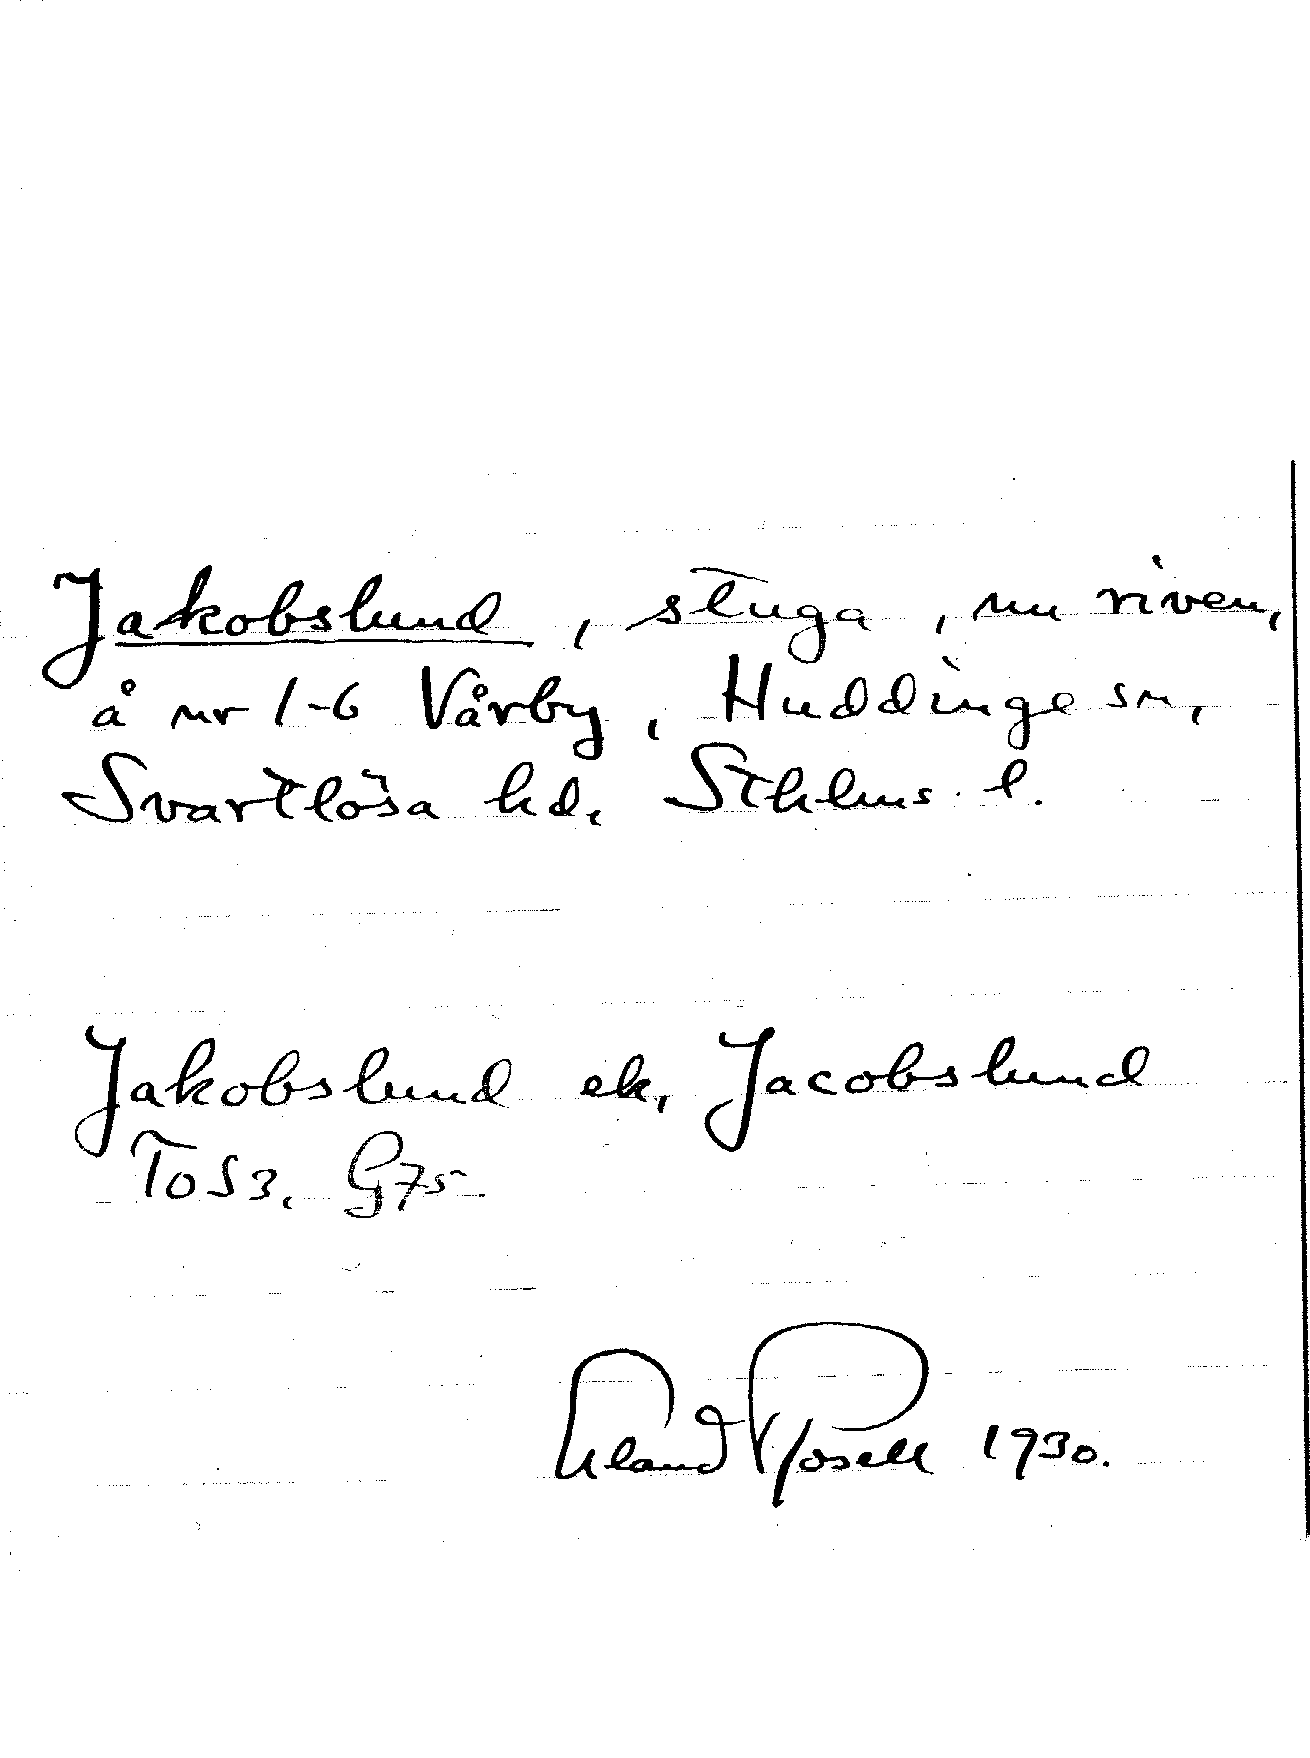 Jakobslund, stuga, nu riven,
å nr 1-6 Vårby, Huddinge sn,
Svartlösa hd, Sthlms l.
Jakobslund ek, Jacobslund
To S3, G75
Erland Rosell 1930.